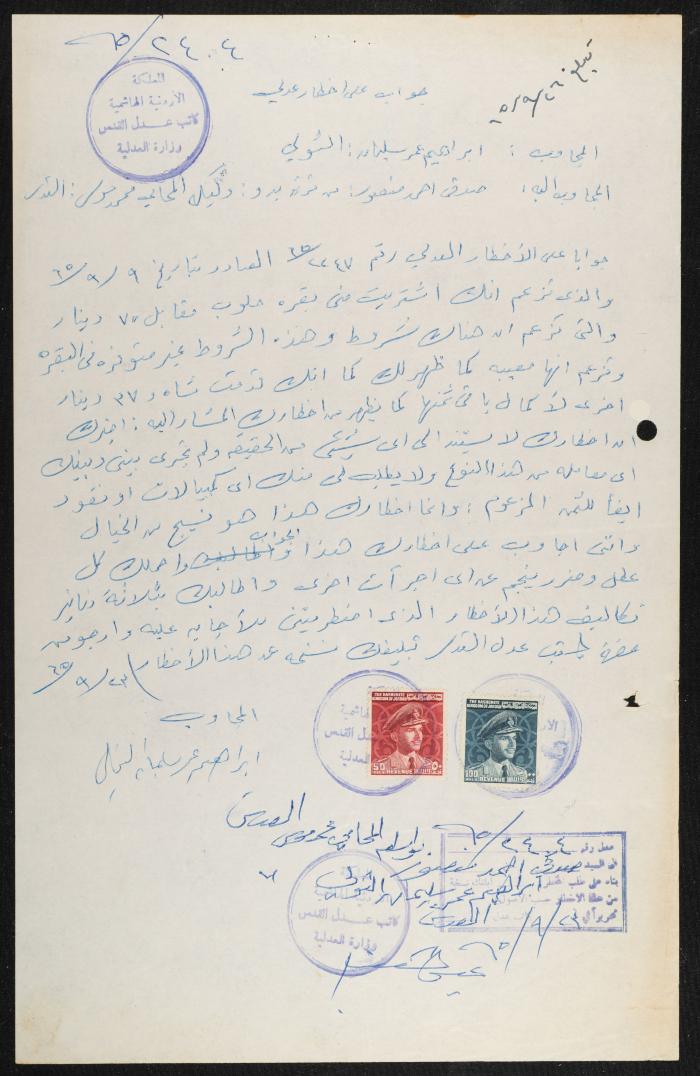 ٦٥/٢٤٠٤
المملكة
الأردنية الهاشمية
كاتب عدل القدس
وزارة العدلية
جواب على اخطار عدلي
المجاوب : ابراهيم عمر سليمان :
المجاوب اليه : صدقي احمد منصور : من قرية بدو : وكيله المحامي محمد موسى : القدس
جوابا على الأخطار العدلي رقم ٦٥/٢٢٤٧ الصادر بتاريخ ٦٥/٩/٩
والذي تزعم انك اشتريت مني بقره حلوب مقابل ٧٥ دينار
والتي تزعم ان هناك شروط وهذه الشروط غير متوفره في البقره
وتزعم انها معيبه كما ظهر لك كما انك قدمت شاه و ٣٧ دينار
اخرى لأكمال باقي ثمنها كما يظهر من اخطارك المشار اليه : اجيبك
ان اخطارك لا يستند الى اي شيء من الحقيقه ولم تجري بيني وبينك
اي معامله من هذا النوع ولا يطلب لي منك اي كمبيالات او نقود
ايفأ للثمن المزعوم : وانما اخطارك هذا هو نسيج من الخيال
وانني اجاوب على اخطارك هذا بالجواب واحملك كل
عطل وضرر ينجم عن اي اجرآت اخرى واطالبك بثلاثة دنانير
تكاليف هذا الأخطار الذي اضطررتني للأجابه عليه وارجو من
حضرة كاتب عدل القدس تبليغك نسخه عن هذا الأخطار ٦٥/٩/٢٣
المجاوب
ابراهيم عمر سليمان
THE HASHEMITE
KINGDOM OF JORDAN
50
REVENUE
THE HASHEMITE
KINGDOM OF JORDAN
100
REVENUE
بواسطة المحامي محمد موسى القدس
٦٥/٢٤٠٤
صدقي احمد منصور
ابراهيم عمر سليمان
القدس
كاتب عدل القدس
وزارة العدلية